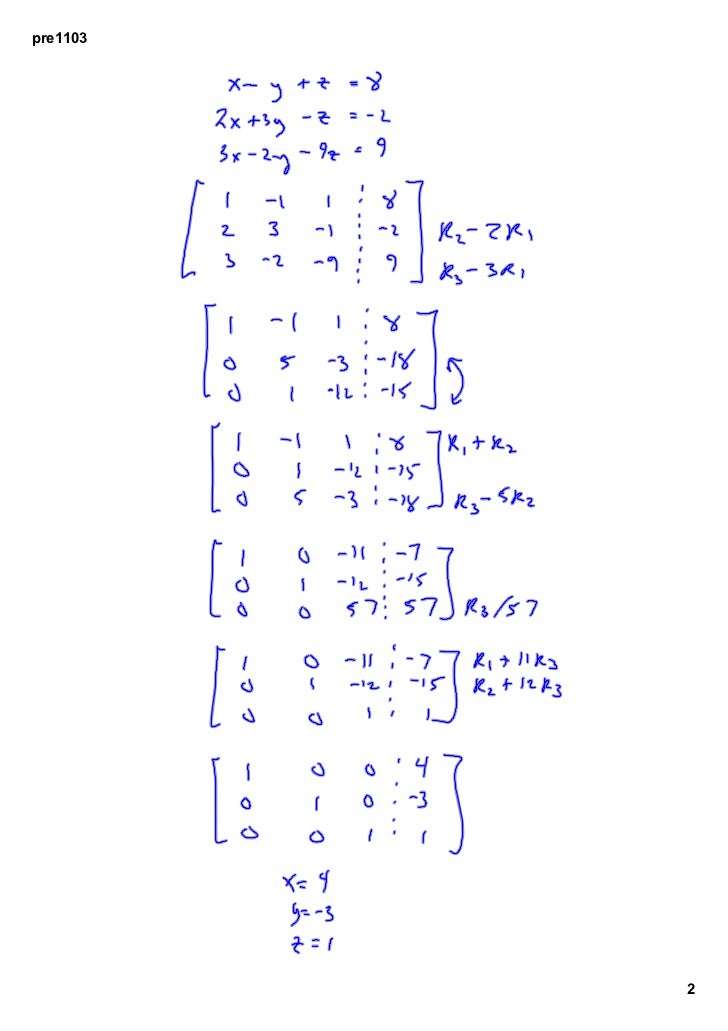 pre1103
x - y + z = 8
2x + 3y - z = -2
3x - 2y - 9z = 9
1 -1 1 8
2 3 -1 -2 R₂ - 2R₁
3 -2 -9 9 R₃ - 3R₁
1 -1 1 8
0 5 -3 -18
0 1 -12 -15
1 -1 1 8 R₁ + R₂
0 1 -12 -15
0 5 -3 -18 R₃ - 5R₂
1 0 -11 -7
0 1 -12 -15
0 0 57 57 R₃/57
1 0 -11 -7 R₁ + 11R₃
0 1 -12 -15 R₂ + 12R₃
0 0 1 1
1 0 0 4
0 1 0 -3
0 0 1 1
x = 4
y = -3
z = 1
2